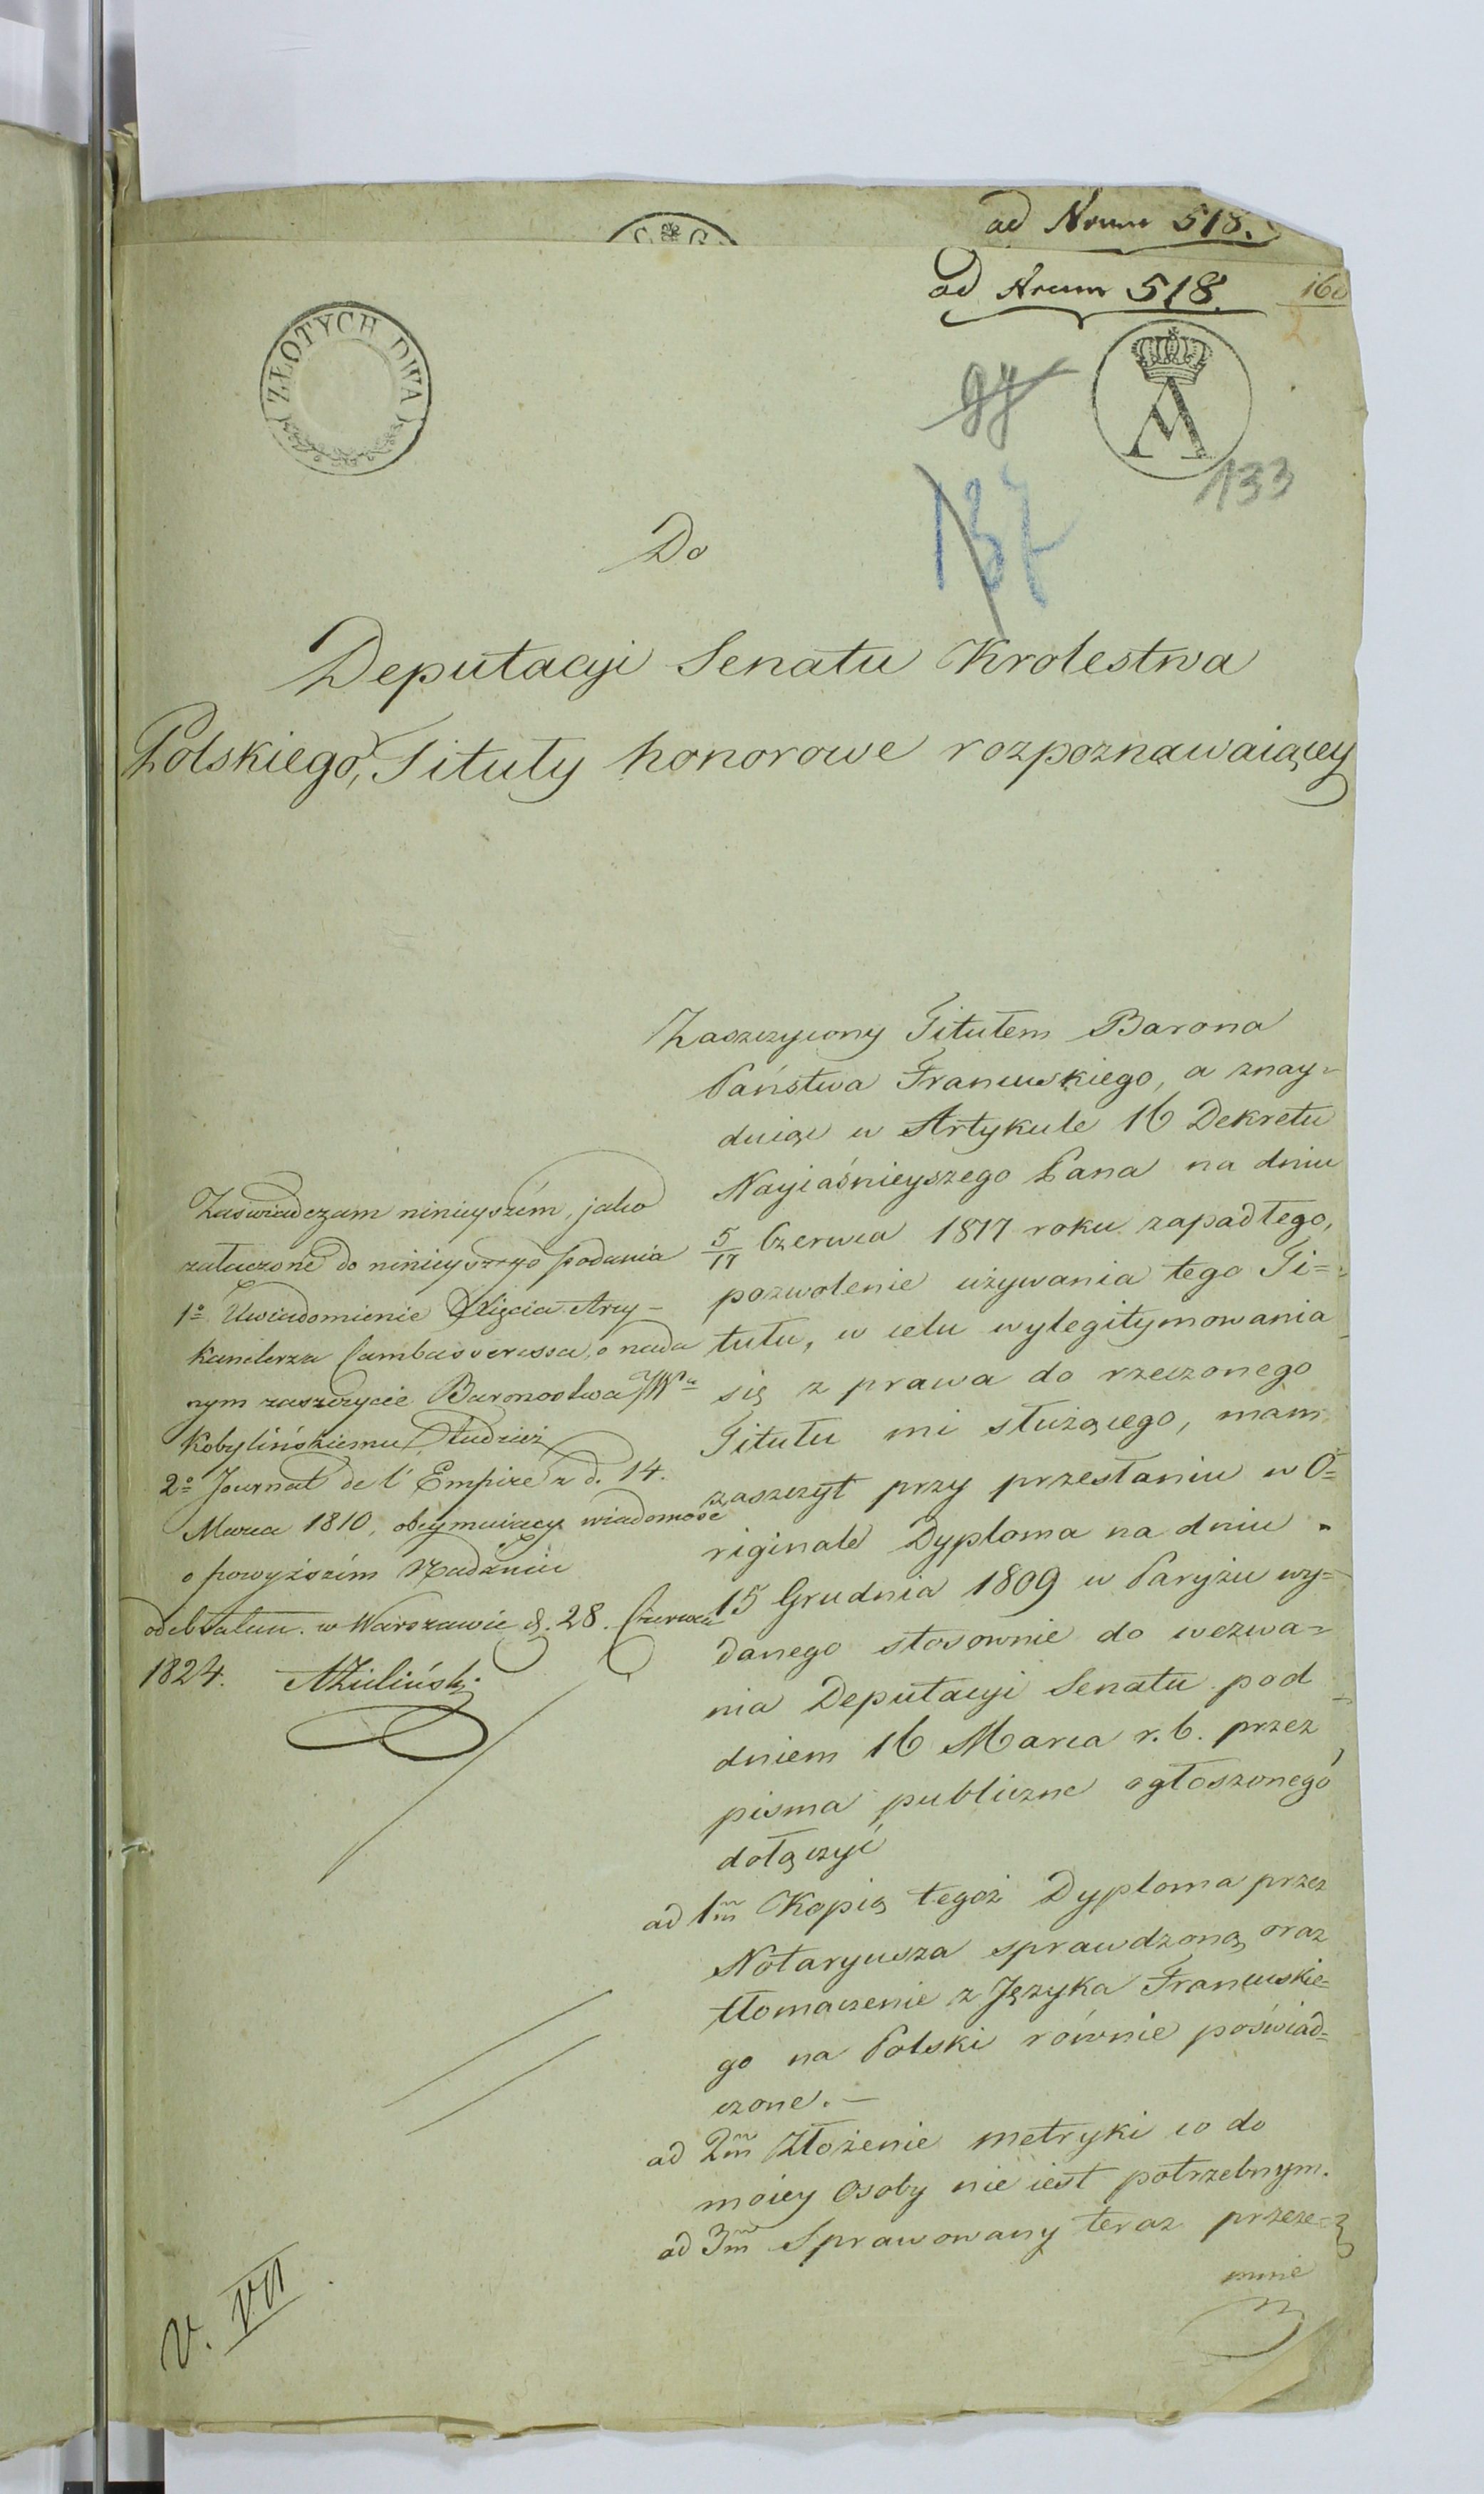 ad Nrum 518.
ad Nrum 518.
160
2.
ZŁOTYCH DWA
A
133
137
Do
Deputacyi Senatu Krolestwa
Polskiego, Tituły honorowe rozpoznawaiącey
Zaszczycony Titułem Barona
Państwa Francuskiego, a znay=
duiąc w Artykule 16 Dekretu
Nayiaśnieyszego Pana na dniu
5/17 Czerwca 1817 roku zapadłego,
pozwolenie używania tego Ti=
tułu, w celu wylegitymowania
się z prawa do rzeczonego
Titułu mi służącego, mam
zaszczyt przy przesłaniu w O=
riginale Dyploma na dniu
15 Grudnia 1809 w Paryżu wy=
danego stosownie do wezwa=
nia Deputacyi Senatu pod
dniem 16 Marca r. b. przez
pisma publiczne ogłoszonego
dołączyć
ad 1m Kopią tegoż Dyploma przez
Notaryusza sprawdzoną oraz
tłomaczenie z Języka Francuskie=
go na Polski równie poświad=
czone. —
ad 2m Złożenie metryki co do
moiey Osoby nie iest potrzebnym.
ad 3m Sprawowany teraz przeze=
mnie
Zaświadczam ninieyszém, jako
załączone do ninieyszego podania
1o Uwiadomienie Xięcia Arcy-
Kanclerza Cambasseressa, o nada
nym zaszczycie Baronostwa JWu
Kobylińskiemu, Tudzież
2o Journal de l'Empire z d. 14.
Marca 1810, obeymuiący wiadomość
o powyższém Nadaniu
odebrałem. w Warszawie d. 28. Czerwca
1824. AZieliński
V. VII